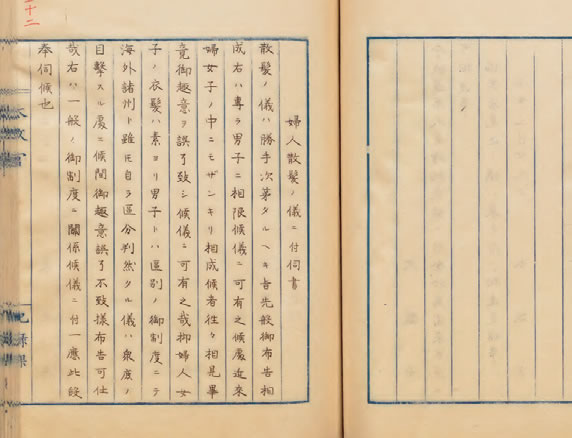 婦人散髪ノ儀ニ付伺書
散髪ノ儀ハ勝手次第タルヘキ旨先般御布告相
成右ハ専ラ男子ニ相限候儀ニ可有之候處近來
婦女子ノ中ニモザンキリ相成候者往々相見畢
竟御趣意ヲ誤了致シ候儀ニ可有之哉抑婦人女
子ノ衣髪ハ素ヨリ男子トハ區別ノ御制度ニテ
海外諸州ト雖モ自ラ區分判然タル儀ハ衆庶ノ
目擊スル處ニ候間御趣意誤了不致樣布告可仕
哉右ハ一般ノ御制度ニ關係候儀ニ付一應此段
奉伺候也